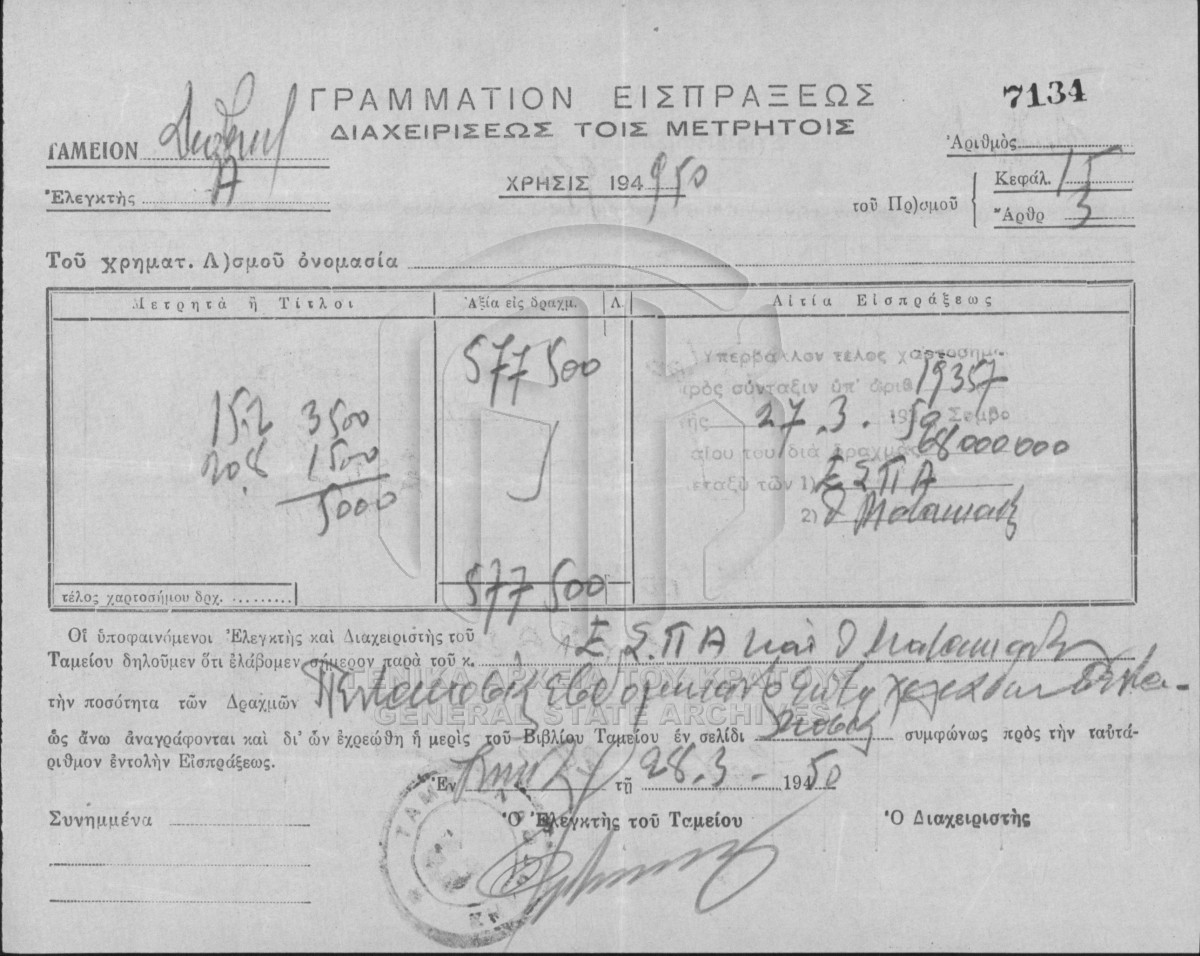 ΓΡΑΜΜΑΤΙΟΝ ΕΙΣΠΡΑΞΕΩΣ
7134
ΔΙΑΧΕΙΡΙΣΕΩΣ ΤΟΙΣ ΜΕΤΡΗΤΟΙΣ
ΤΑΜΕΙΟΝ
Ἀριθμὸς
Ἐλεγκτὴς Α
ΧΡΗΣΙΣ 194 950
τοῦ Πρ)σμοῦ
Κεφάλ. 15
Ἄρθρ 3
Τοῦ χρηματ. Λ)σμοῦ ὀνομασία
Μετρητὰ ἢ Τίτλοι
Ἀξία εἰς δραχμ.
Λ.
Αἰτία Εἰσπράξεως
577 500
Ὑπερβάλλον τέλος χαρτοσήμ
πρὸς σύνταξιν ὑπ' ἀριθ 19357
15.2 3500
τῆς 27.3. 19 50 Συμβο
20.8 1500
λαίου του διὰ δραχμὰς 68000000
5000
μεταξὺ τῶν 1) ΕΣΠΑ
2)
577 500
τέλος χαρτοσήμου δρχ.
Οἱ ὑποφαινόμενοι Ἐλεγκτὴς καὶ Διαχειριστὴς τοῦ
Ταμείου δηλοῦμεν ὅτι ἐλάβομεν σήμερον παρὰ τοῦ κ. Ε Σ.ΠΑ καὶ
ΓΕΝΙΚΑ ΑΡΧΕΙΑ ΤΟΥ ΚΡΑΤΟΥΣ
τὴν ποσότητα τῶν Δραχμῶν Πεντακοσίας ἑβδομήκοντα ἑπτὰ χιλιάδας πεντα-
GENERAL STATE ARCHIVES
κοσίας
ὡς ἄνω ἀναγράφονται καὶ δι' ὧν ἐχρεώθη ἡ μερὶς τοῦ Βιβλίου Ταμείου ἐν σελίδι συμφώνως πρὸς τὴν ταὐτά-
ριθμον ἐντολὴν Εἰσπράξεως.
Ἐν τῇ 28.3.- 194 50
Συνημμένα
Ὁ Ἐλεγκτὴς τοῦ Ταμείου
Ὁ Διαχειριστὴς